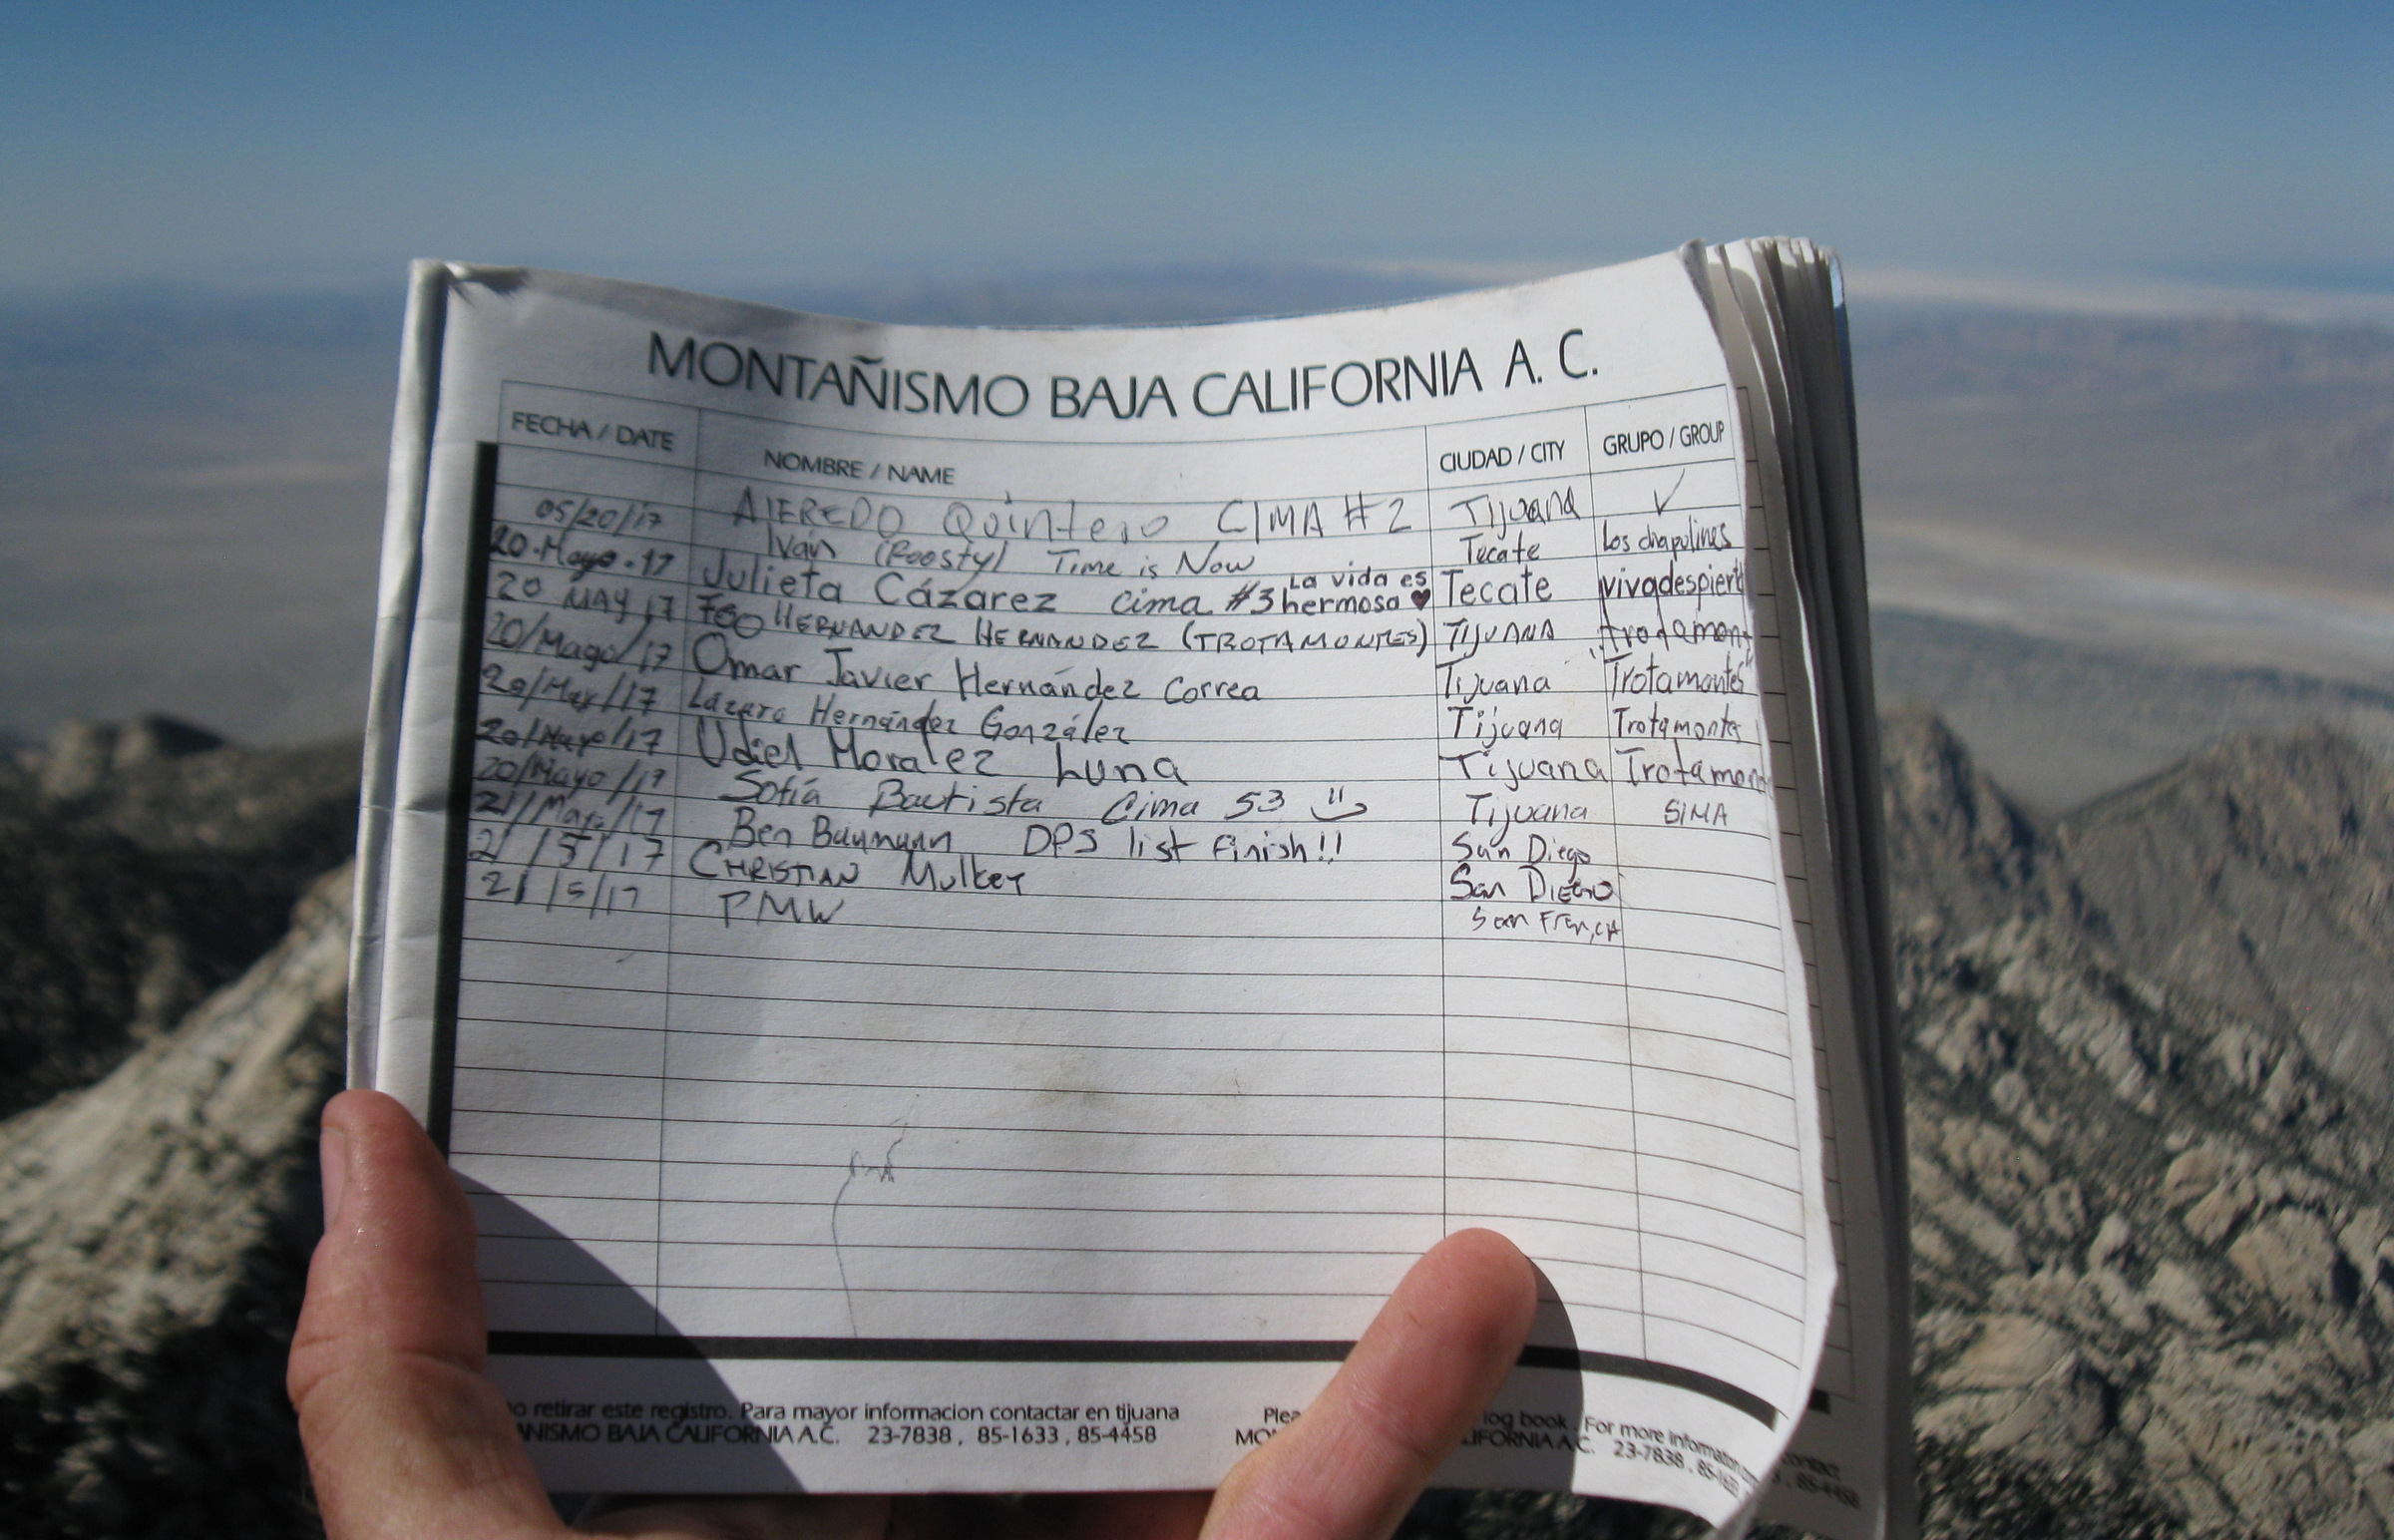 MONTAÑISMO BAJA CALIFORNIA A. C.
FECHA / DATE NOMBRE / NAME CIUDAD / CITY GRUPO / GROUP
05/20/17 AlFREDO Quintero CIMA #2 Tijuana ✓
Iván (Roosty) Time is Now Tecate Los chapulines
20.Mayo.17 Julieta Cázarez cima #3 La vida es hermosa ♥ Tecate vivadespiert
20 MAY 17 HERNANDEZ HERNANDEZ (TROTAMONTES) TIJUANA trotamont
20/Mayo/17 Omar Javier Hernández Correa Tijuana "Trotamontes"
20/May/17 Lázaro Hernández González Tijuana Trotamontes
20/Mayo/17 Udiel Moralez Luna Tijuana Trotamont
20/Mayo/17 Sofía Bautista Cima 53 Tijuana SIMA
21/Mayo/17 Ben Baumann DPS list finish!! San Diego
21/5/17 CHRISTIAN Mulkey San DIEGO
21/5/17 PMW San Fran, CA
o retirar este registro. Para mayor informacion contactar en tijuana
ANISMO BAJA CALIFORNIA A.C. 23-7838, 85-1633, 85-4458
Plea log book. For more information contact
MO IFORNIA A.C. 23-7838, 85-1633, 85-4458